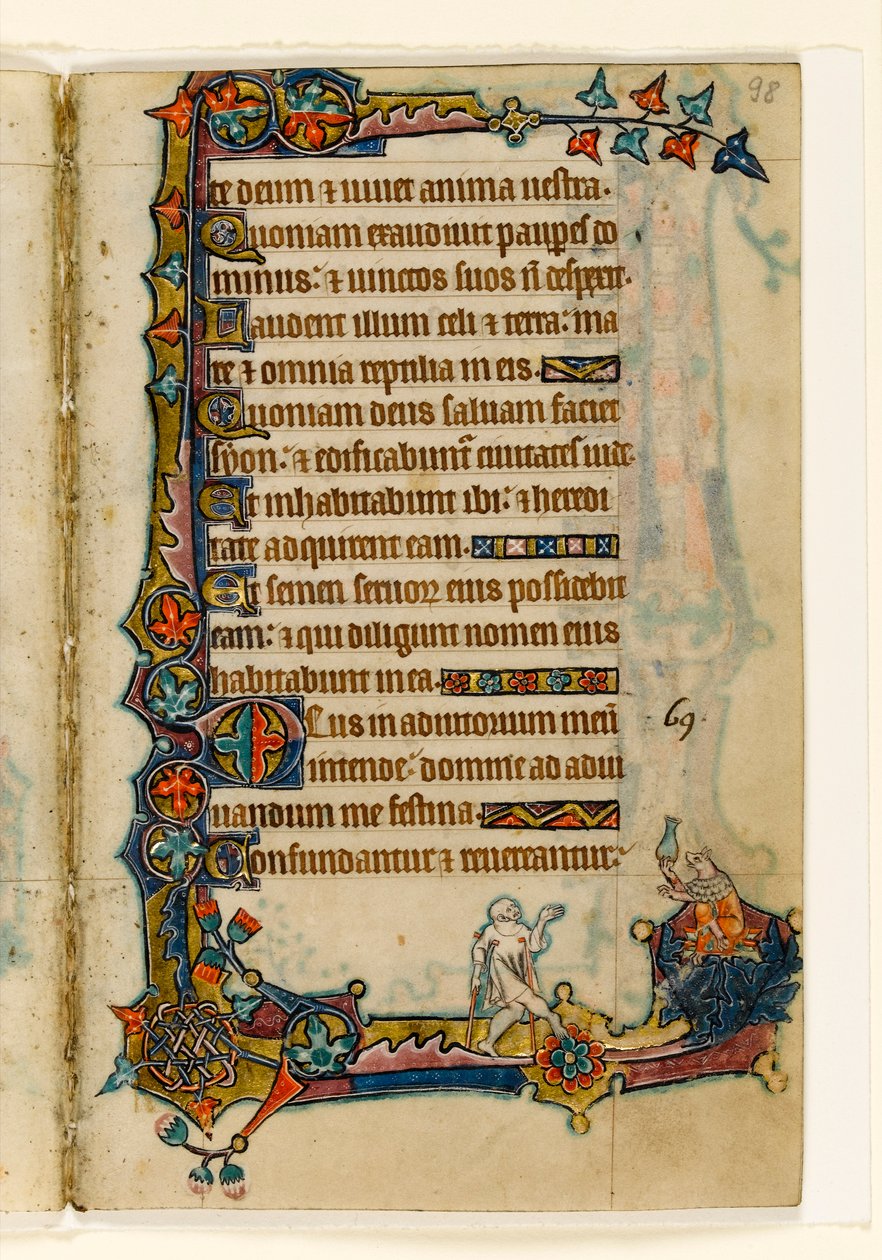 98
te deum ⁊ uiuet anima uestra.
Quoniam exaudiuit paup̲es do
minus: ⁊ uinctos suos n̄ despexit.
Laudent illum celi ⁊ terra: ma
re ⁊ omnia reptilia in eis.
Quoniam deus saluam faciet
syon: ⁊ edificabunt᷑ ciuitates iude.
Et inhabitabunt ibi: ⁊ heredi
tate adquirent eam.
Et semen seruoꝝ eius possidebit
eam: ⁊ qui diligunt nomen eius
habitabunt in ea.
Deus in adiutorium meū
69.
intende: domine ad adiu
uandum me festina.
Confundantur ⁊ reuereantur: